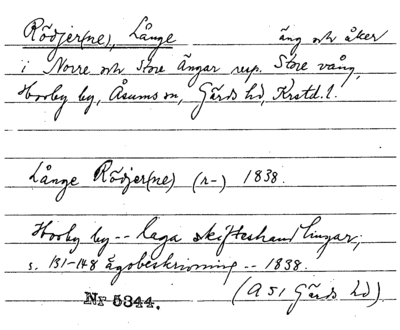 Rödjer(ne), Långe äng och åker
i Norre och Store Ängar resp. Store vång,
Hovby by, Åsums sn, Gärds hd, Krstd. l.
Långe Rödjer(ne) (r-) 1838.
Hovby by -- laga skifteshandlingar,
s. 131-148 ägobeskrivning -- 1838.
(A 51 Gärds hd).
Nr 5344.